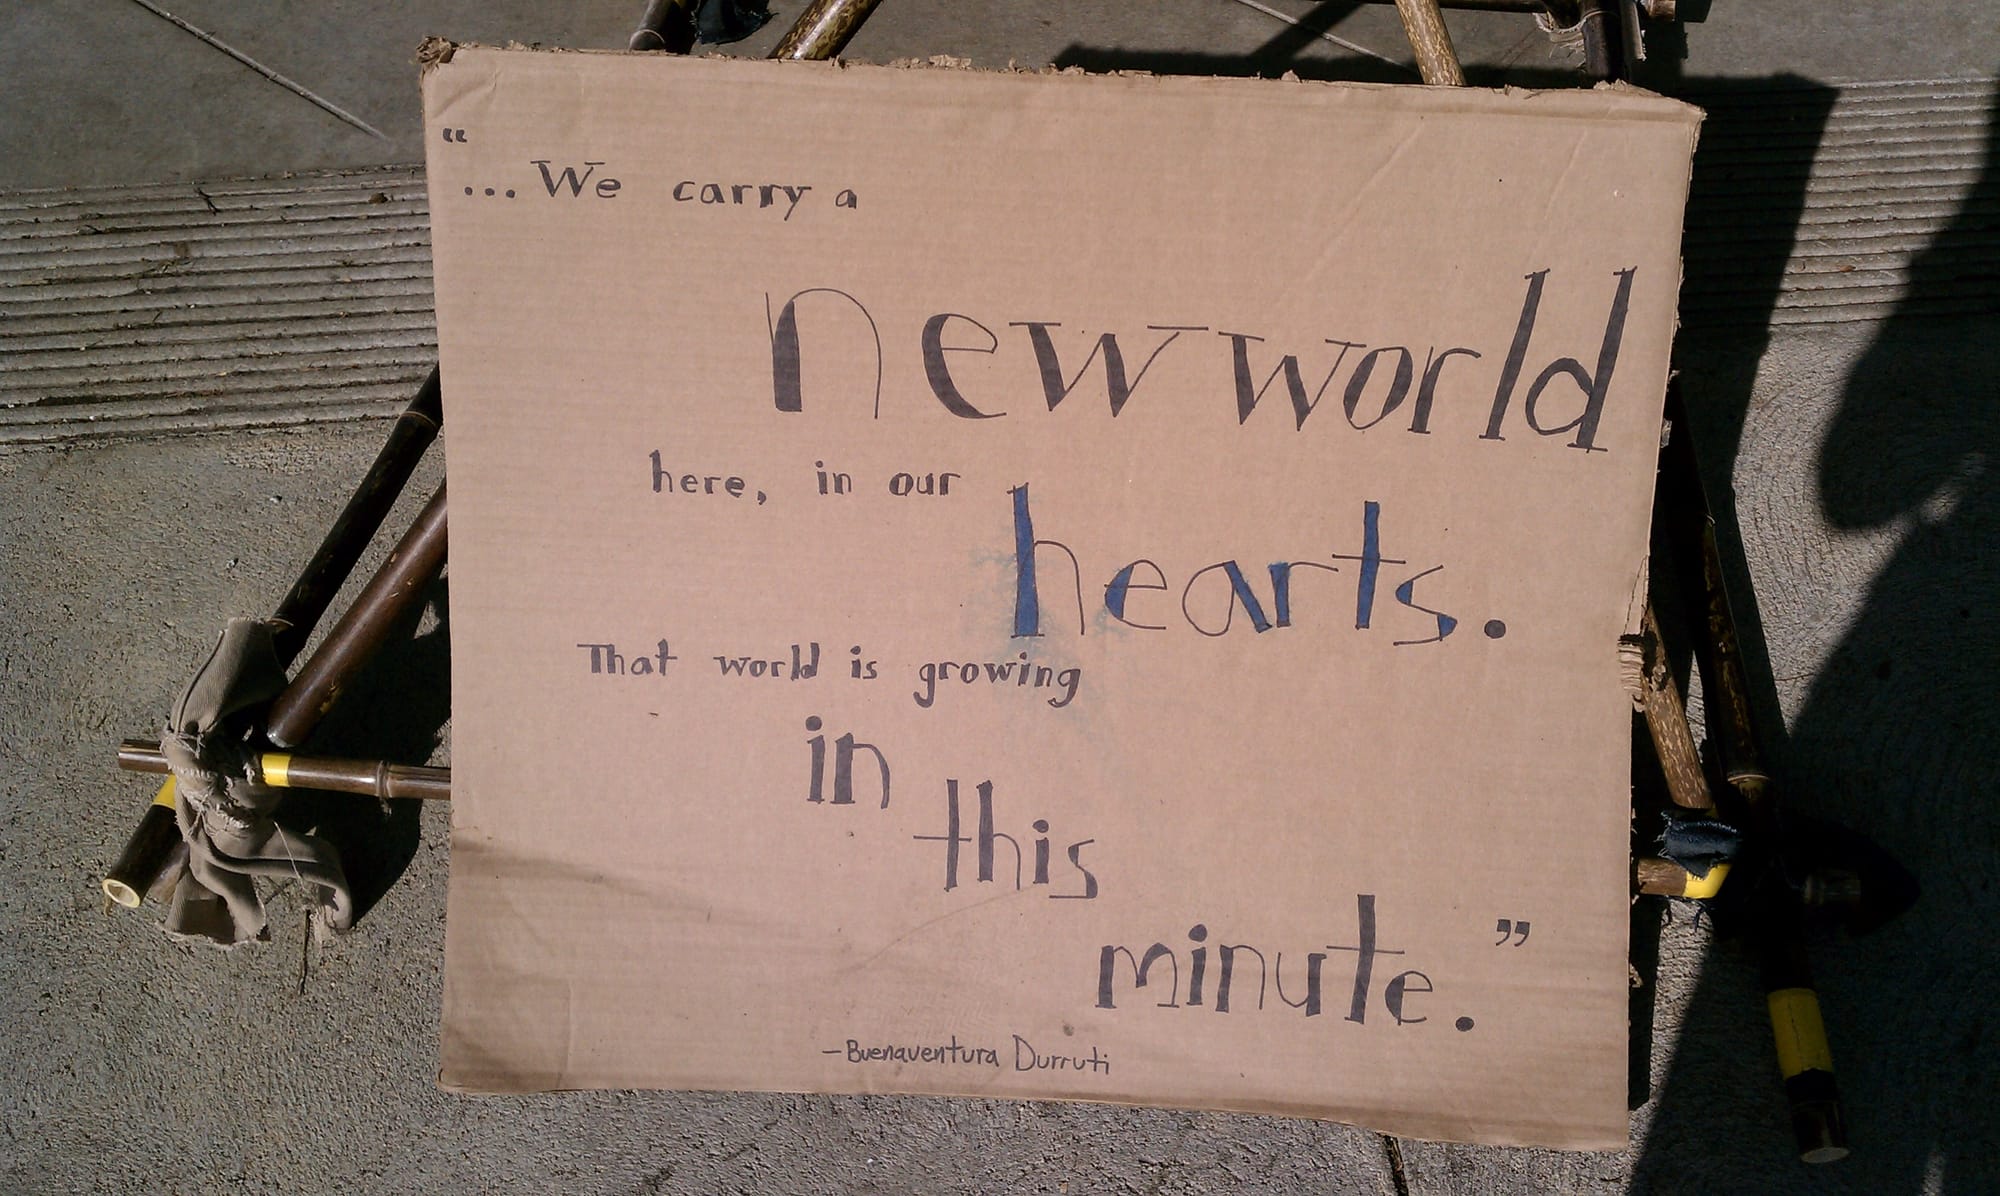 “
...We carry a
new world
here, in our
hearts.
That world is growing
in
this
minute.”
—Buenaventura Durruti